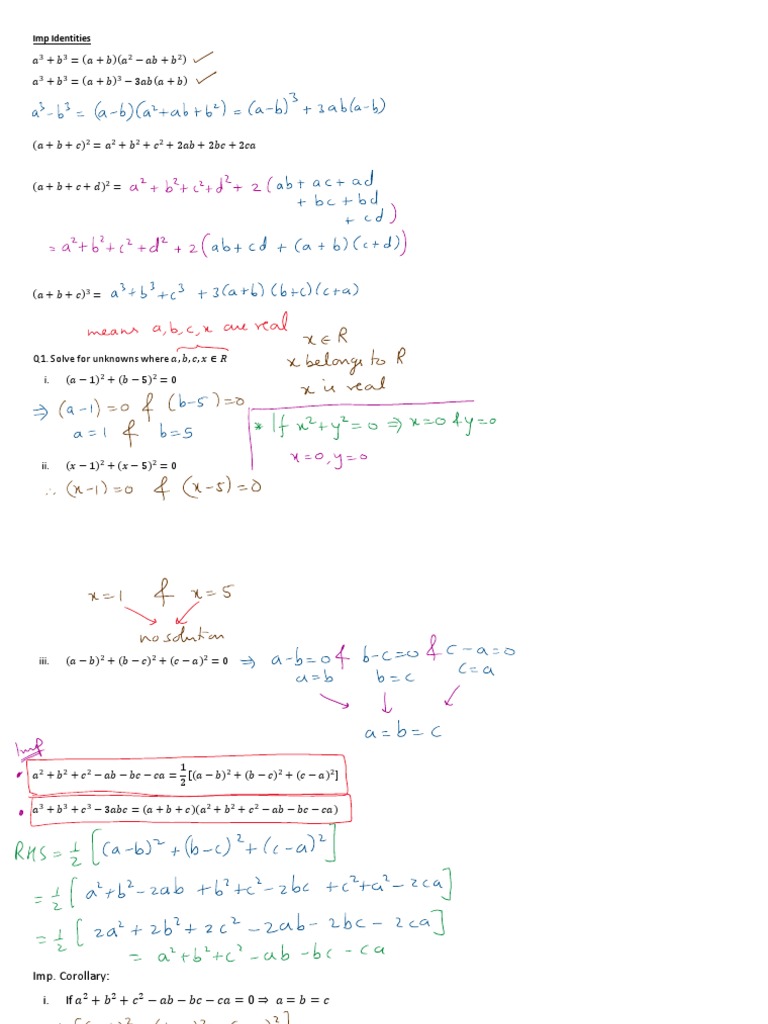 Imp Identities
a³ + b³ = (a + b)(a² − ab + b²) ✓
a³ + b³ = (a + b)³ − 3ab(a + b) ✓
a³-b³ = (a-b)(a²+ab+b²) = (a-b)³ + 3ab(a-b)
(a + b + c)² = a² + b² + c² + 2ab + 2bc + 2ca
(a + b + c + d)² = a² + b² + c² + d² + 2(ab + ac + ad
+ bc + bd
+ cd)
= a²+b²+c²+d² + 2(ab+cd + (a+b)(c+d))
(a + b + c)³ = a³+b³+c³ + 3(a+b)(b+c)(c+a)
means a,b,c,x are real
x ∈ R
Q1. Solve for unknowns where a, b, c, x ∈ R
x belongs to R
i. (a − 1)² + (b − 5)² = 0
x is real
⇒ (a-1)=0 & (b-5)=0
a=1 & b=5
* If x²+y²=0 ⇒ x=0 & y=0
x=0, y=0
ii. (x − 1)² + (x − 5)² = 0
∴ (x-1)=0 & (x-5)=0
x=1 & x=5
no solution
iii. (a − b)² + (b − c)² + (c − a)² = 0 ⇒ a-b=0 & b-c=0 & c-a=0
a=b b=c c=a
a=b=c
Imp
• a² + b² + c² − ab − bc − ca = 1/2[(a − b)² + (b − c)² + (c − a)²]
• a³ + b³ + c³ − 3abc = (a + b + c)(a² + b² + c² − ab − bc − ca)
RHS = 1/2 [(a-b)² + (b-c)² + (c-a)²]
= 1/2 [a²+b²-2ab + b²+c²-2bc + c²+a²-2ca]
= 1/2 [2a² + 2b² + 2c² - 2ab - 2bc - 2ca]
= a²+b²+c²-ab-bc-ca
Imp. Corollary:
i. If a² + b² + c² − ab − bc − ca = 0 ⇒ a = b = c